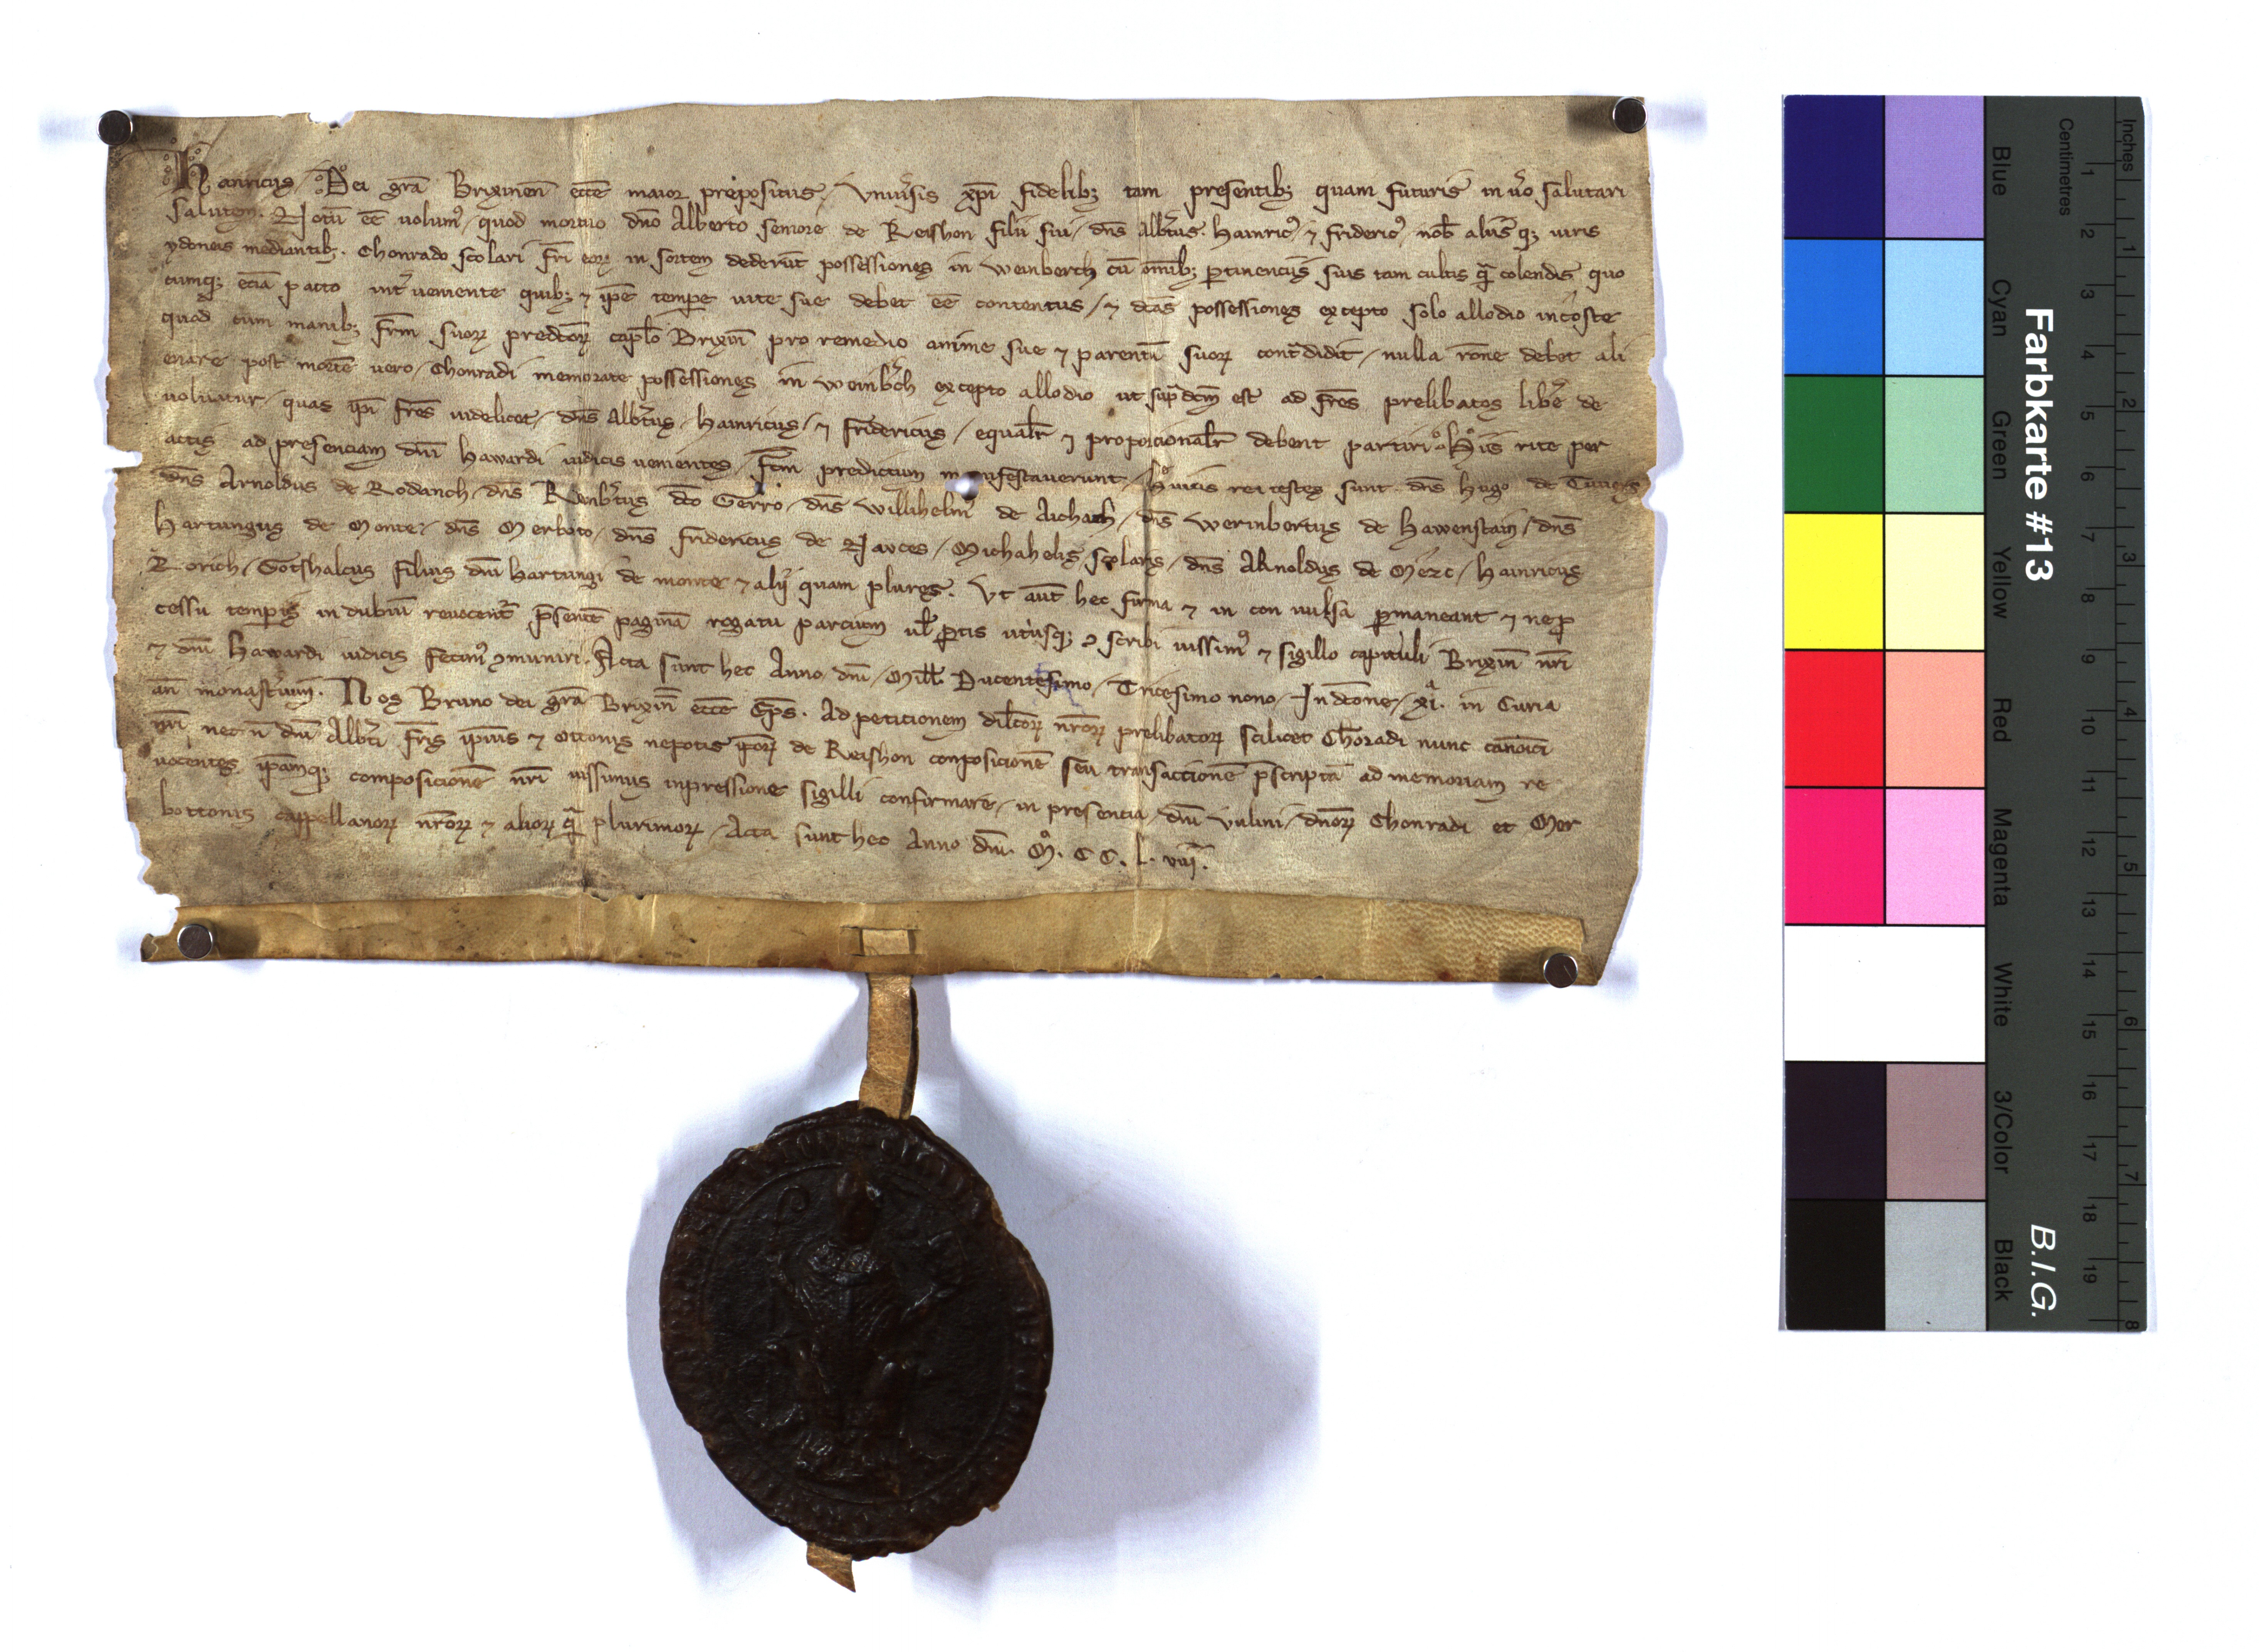 Hainricus Dei gr̄a Brixinen̄ eccē maior prepositus, Vniu̾sis xp̄i fidelibꝫ tam presentibꝫ quam futuris in u̾o salutari
salutem. Notū ēē uolumꝰ quod mortuo dn̄o Alberto seniore de Reishon filii sui dn̄s Alb̾tus. Hainricꝰ ⁊ fridericꝰ, nob̄ aliisqꝫ uiris
ydoneis mediantibꝫ. Chonrado scolari fr̄i eoꝝ in sortem dederūt possessiones in Weinberch cū om̄ibꝫ ꝑtinenciis suis tam cultis qᷓ colendis quo
cumqꝫ eciā pacto int̾ueniente quibꝫ ⁊ ip̄e tempe uite sue debet ēē contentus, ⁊ dc̄as possessiones excepto solo allodio incoste
quod cum manibꝫ fr̄m suoꝝ predc̄oꝝ capl̄o Brixin̄ pro remedio anime sue ⁊ parentū suoꝝ contᷓdidit, nulla rōne debet ali
enare post mortē uero, Chonradi memorate possessiones in Weinb̾ch excepto allodio ut supᷓdc̄m est ad fr̄es prelibatos lib̾e de
uoluntur, quas ip̄i fr̄es uidelicet, dn̄s Alb̾tus, Hainricus, ⁊ fridericus, equalr̄ ⁊ proporcionalr̄ debent partiri. Hiis rite per
actis ad presenciam dn̄i Hawardi iudicis uenientes, fc̄m predictum manifestauerunt, Huius rei testes sunt. dn̄s Hugo de Tuuers
dn̄s Arnoldus de Rodanch, dn̄s Reinb̾tus dc̄o Gerro, dn̄s Willihelmꝰ de Aichach, dn̄s Werinbertus de Hawenstain, dn̄s
Hartungus de Monte, dn̄s Merboto, dn̄s fridericus de Natces, Michahelis scolaris, dn̄s Arnoldus de Merc, Hainricus
Rorich, Gotshalcus filius dn̄i Hartungi de monte ⁊ alij quam plures. Vt aut̄ hec firma ⁊ in con uulsa ꝑmaneant ⁊ ne ꝓ
cessu tempis in dubiū reuocent̾ p̄sentē paginā rogatu parcium ul̄ ꝑtis utriusqꝫ ꝯscribi iussimꝰ ⁊ sigillo capituli Brixin̄ nr̄i
⁊ dn̄i Hawardi iudicis fecimꝰ ꝯmuniri. Acta sunt hec Anno dn̄i, Mill̄. Ducentesimo, Tricesimo nono, Indc̄one, xi. in Curia
an̄ monast̾ium. Nos Bruno dei gr̄a Brixin̄ eccē Ep̄s. Ad peticionem dilc̄oꝝ nr̄oꝝ prelibatoꝝ scilicet Chōradi nunc canōici
nr̄i nec n̄ dn̄i Alb̾ti fr̄is ip̄ius ⁊ Ottonis nepotis ip̄oꝝ de Reishon conposicionē seu transactionē p̄scriptā ad memoriam re
uocentes ip̄amqꝫ composicionē nr̄i iussimus inpressione sigilli confirmare, in presencia dn̄i Vulini, dn̄oꝝ Chonradi et Mer
bottonis cappellanoꝝ nr̄oꝝ ⁊ alioꝝ qᷓ plurimoꝝ, Acta sunt hec Anno dn̄i. M̊. CC. L. viij.
Farbkarte #13
B.I.G.
Inches
Centimetres
Blue Cyan Green Yellow Red Magenta White 3/Color Black
1 2 3 4 5 6 7 8 9 10 11 12 13 14 15 16 17 18 19
1 2 3 4 5 6 7 8